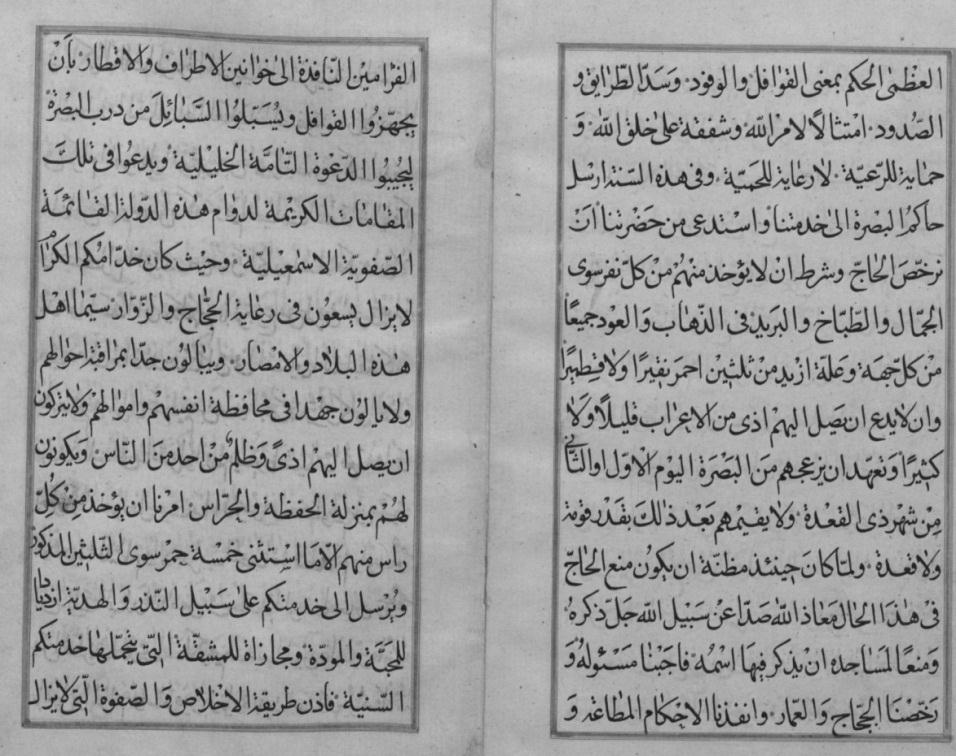 العظمىٰ الحكم بمعنى القوافل والوفود۰ وسَدّ الطّرايق و
الصّدود۰ امتثالًا لامرالله وشفقة علىٰ خلق الله۰ وَ
حماية للرّعيّة۰ لارعاية للحميّة۰ وفى هذه السّنة ارسل
حاكم البصرة الىٰ خدمتنا واستدعى من حَضْرتنا اَنْ
نرخّصَ الحاجّ وشرط ان لا يؤخذ منهُم مِنْ كلّ نفر سوى
الجمّال والطّبّاخ والبريد فى الذّهاب وَالعود جميعًا
مِنْ كلّ جهة۰ وعلّة۰ ازيد مِنْ ثلثين احمر نقيرًا ولا قطميرًا
وان لا يدع ان يصل اليهم اذى من الاعراب قليلًا وَلا
كثيرًا وَتعهّد ان يزعجهم مَن البَصْرَة اليوم الاوّل او الثّانى
مِنْ شهر ذى القعدة۰ ولا يقيم هم بَعْد ذٰلكَ بقَدْر قومة
ولا قعدة۰ ولمّا كانَ حينئذ مظنّة ان يكونُ منع الحاجّ
فى هٰذَا الحال مَعاذ اللّٰه صَدّا عَنْ سَبيل اللّٰه جَلّ ذكرهُ
وَمنعًا لمَسَاجده انْ يذكر فيها اسْمُهُ۰ فاَجَبْنا مَسْئوله وَ
رخّصْنا الحجّاج وَالعمّار۰ وانفذنا الاحكام المطاعة وَ
الفرامين النّافذة الىٰ خوانين الاطراف والاقطار۰ باَنْ
يجهّزوُا القوافل وليُسَبّلوُا السَّبائِلَ من درب البصْرة
ليجُيبوُا الدّعوة التّامّة الخليليّة۰ ويدعوُا فى تلكَ
المقامات الكريمة لدوام هذه الدّولة القائمَة
الصّفويّة الاسمٰعيليّة۰ وحيْث كان خدّامُكم الكرام
لا يزال يسعَوْن فى رعاية الحجّاج والزّوّار۰ سيّما اهْل
هٰذه البلاد والامْصار۰ ويبالوُن جدّا بمراقبة احوالهم
ولا يالوُن جهْدا فى محافظة انفسهمْ واموالهمْ ولا يتركون
ان يصل اليهمْ اذىً وَظلمٌ منْ احد منَ النّاس وَيكونوُن
لهُمْ بمنزلة الحفظة والحرّاس۰ امرنا ان يؤخذ مِنْ كُلّ
راس منهم الّا ما استثنى خمسْة حمرْ سوى الثّلثين المذكور
ويُرْسل الى خدمتكم علىٰ سَبيْل النّذر وَالهديّة۰ ازديادا
للمحبّة والمودّة۰ ومجازاة للمشقّة الّتى يتحمّلها خدمتكم
السّنيّة۰ فاذن طريقة الاخلاص وَالصّفوة الّتى لا يزال